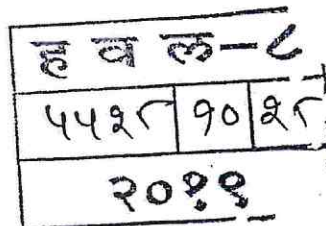 ह व ल-८
५५२८ १० २८
२०१९